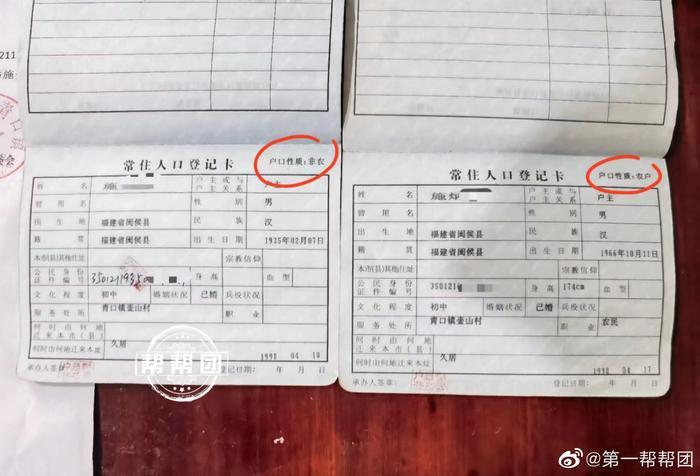 211
常住人口登记卡
户口性质:非农
姓 名
施
户主或与户主关系
户主
曾用名
性 别
男
出生地
福建省闽侯县
民 族
汉
籍 贯
福建省闽侯县
出生日期
1935年02月07日
本市(县)其他住址
宗教信仰
公民身份证件编号
350121935
身 高
血 型
文化程度
初中
婚姻状况
已婚
兵役状况
服务处所
青口镇壶山村
职业
何时由何地迁来本市(县)
何时由何地迁来本址
久居
1998 04 18
承办人签章
登记日期: 年 月 日
常住人口登记卡
户口性质:农户
姓 名
施
户主或与户主关系
户主
曾用名
性 别
男
出生地
福建省闽侯县
民 族
汉
籍 贯
福建省闽侯县
出生日期
1966年10月11日
本市(县)其他住址
宗教信仰
公民身份证件编号
3501216
身 高
174cm
血 型
文化程度
初中
婚姻状况
已婚
兵役状况
服务处所
青口镇壶山村
职业
农民
何时由何地迁来本市(县)
何时由何地迁来本址
久居
1998 04 17
承办人签章
登记日期: 年 月 日
帮帮团
@第一帮帮团